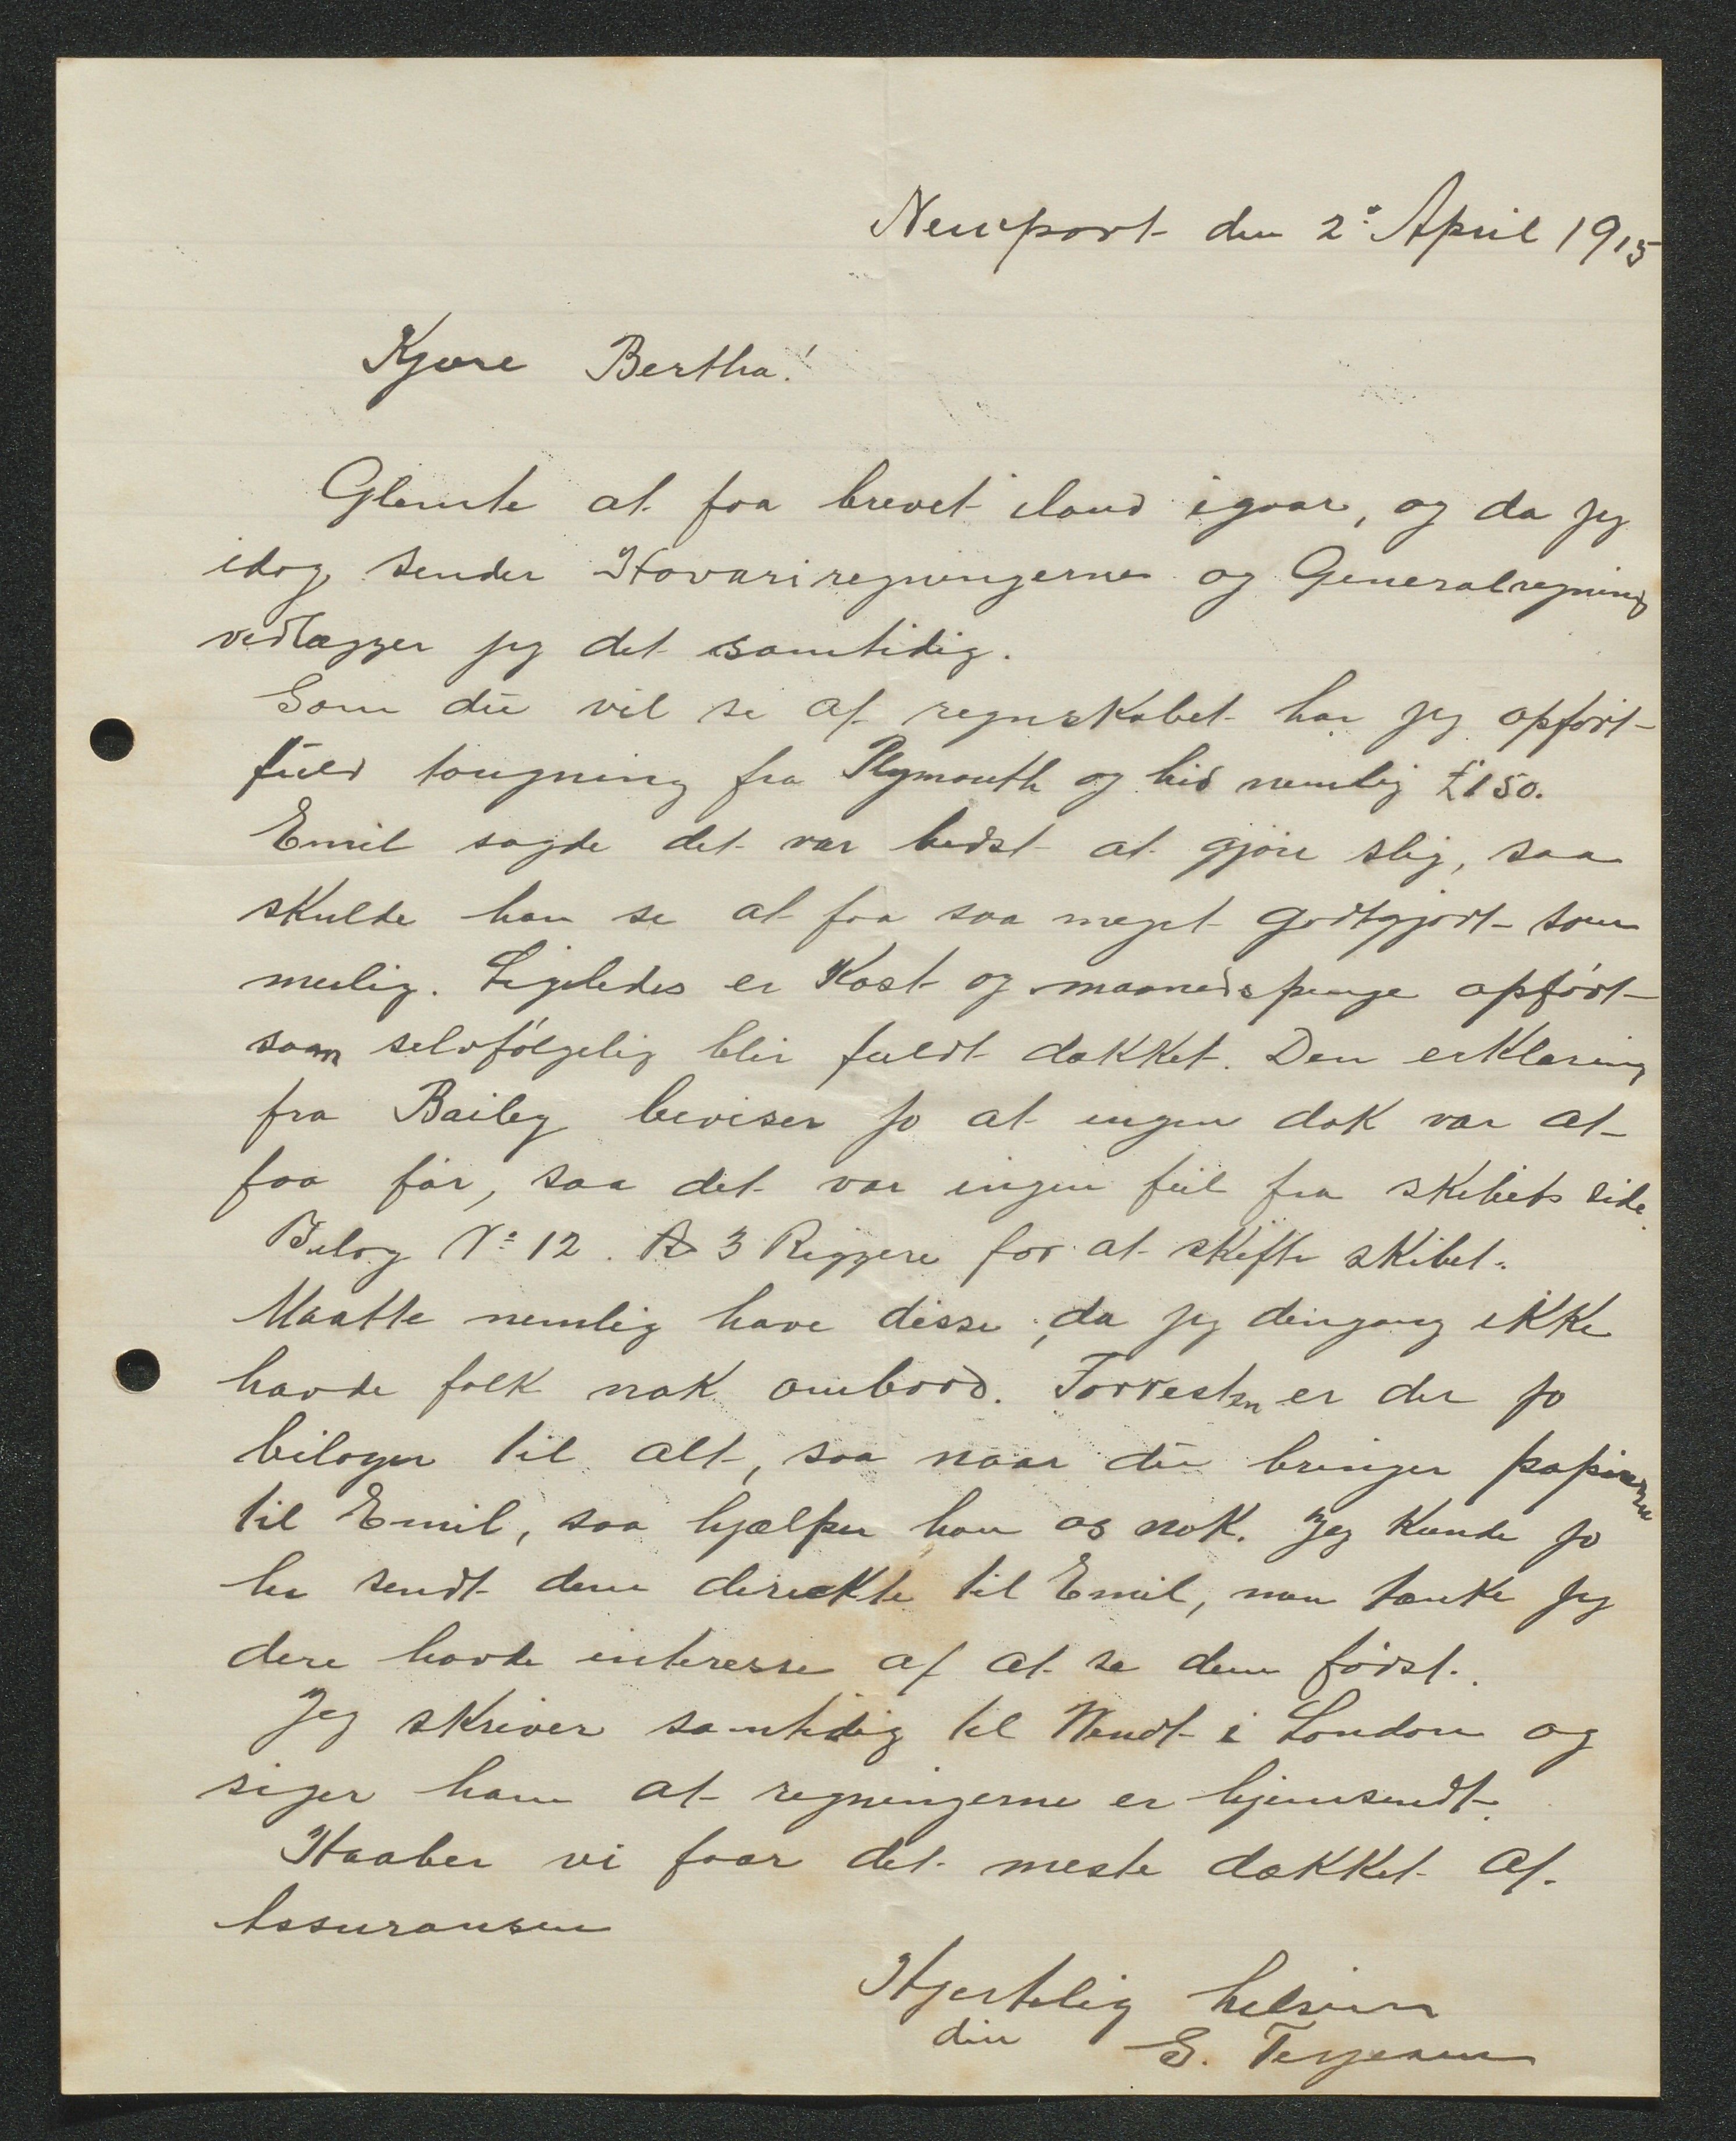 Newport den 2: April 1915
Kjære Bertha!
Glemte at faa brevet iland igaar, og da jeg
idag sender Havariregningerne og Generalregning
vedlægger jeg det samtidig.
Som du vil se af regnskabet har jeg opført
fuld tougning fra Plymouth og hid nemlig £150.
Emil sagde det var bedst at gjøre slig, saa
skulde han se at faa saa meget godtgjort som
mulig. Ligeledes er Kost og maanedspenge opført
som selvfølgelig blir fuldt dækket. Den erklæring
fra Bailey beviser jo at ingen dok var at
faa før, saa det var ingen feil fra skibets side.
Bilag No 12. 3 Riggere for at skifte skibet.
Maatte nemlig have disse, da jeg dengang ikke
havde folk nok ombord. Forresten er der jo
bilager til alt, saa naar du bringer papirerne
til Emil, saa hjælper han os nok. Jeg kunde jo
ha sendt dem direkte til Emil, men tænkte jeg
dere havde interesse af at se dem først.
Jeg skriver samtidig til Wendt i London og
siger ham at regningerne er hjemsendt.
Haaber vi faar det meste dækket af
Assuransen
Hjertelig hilsen
din E. Terjesen